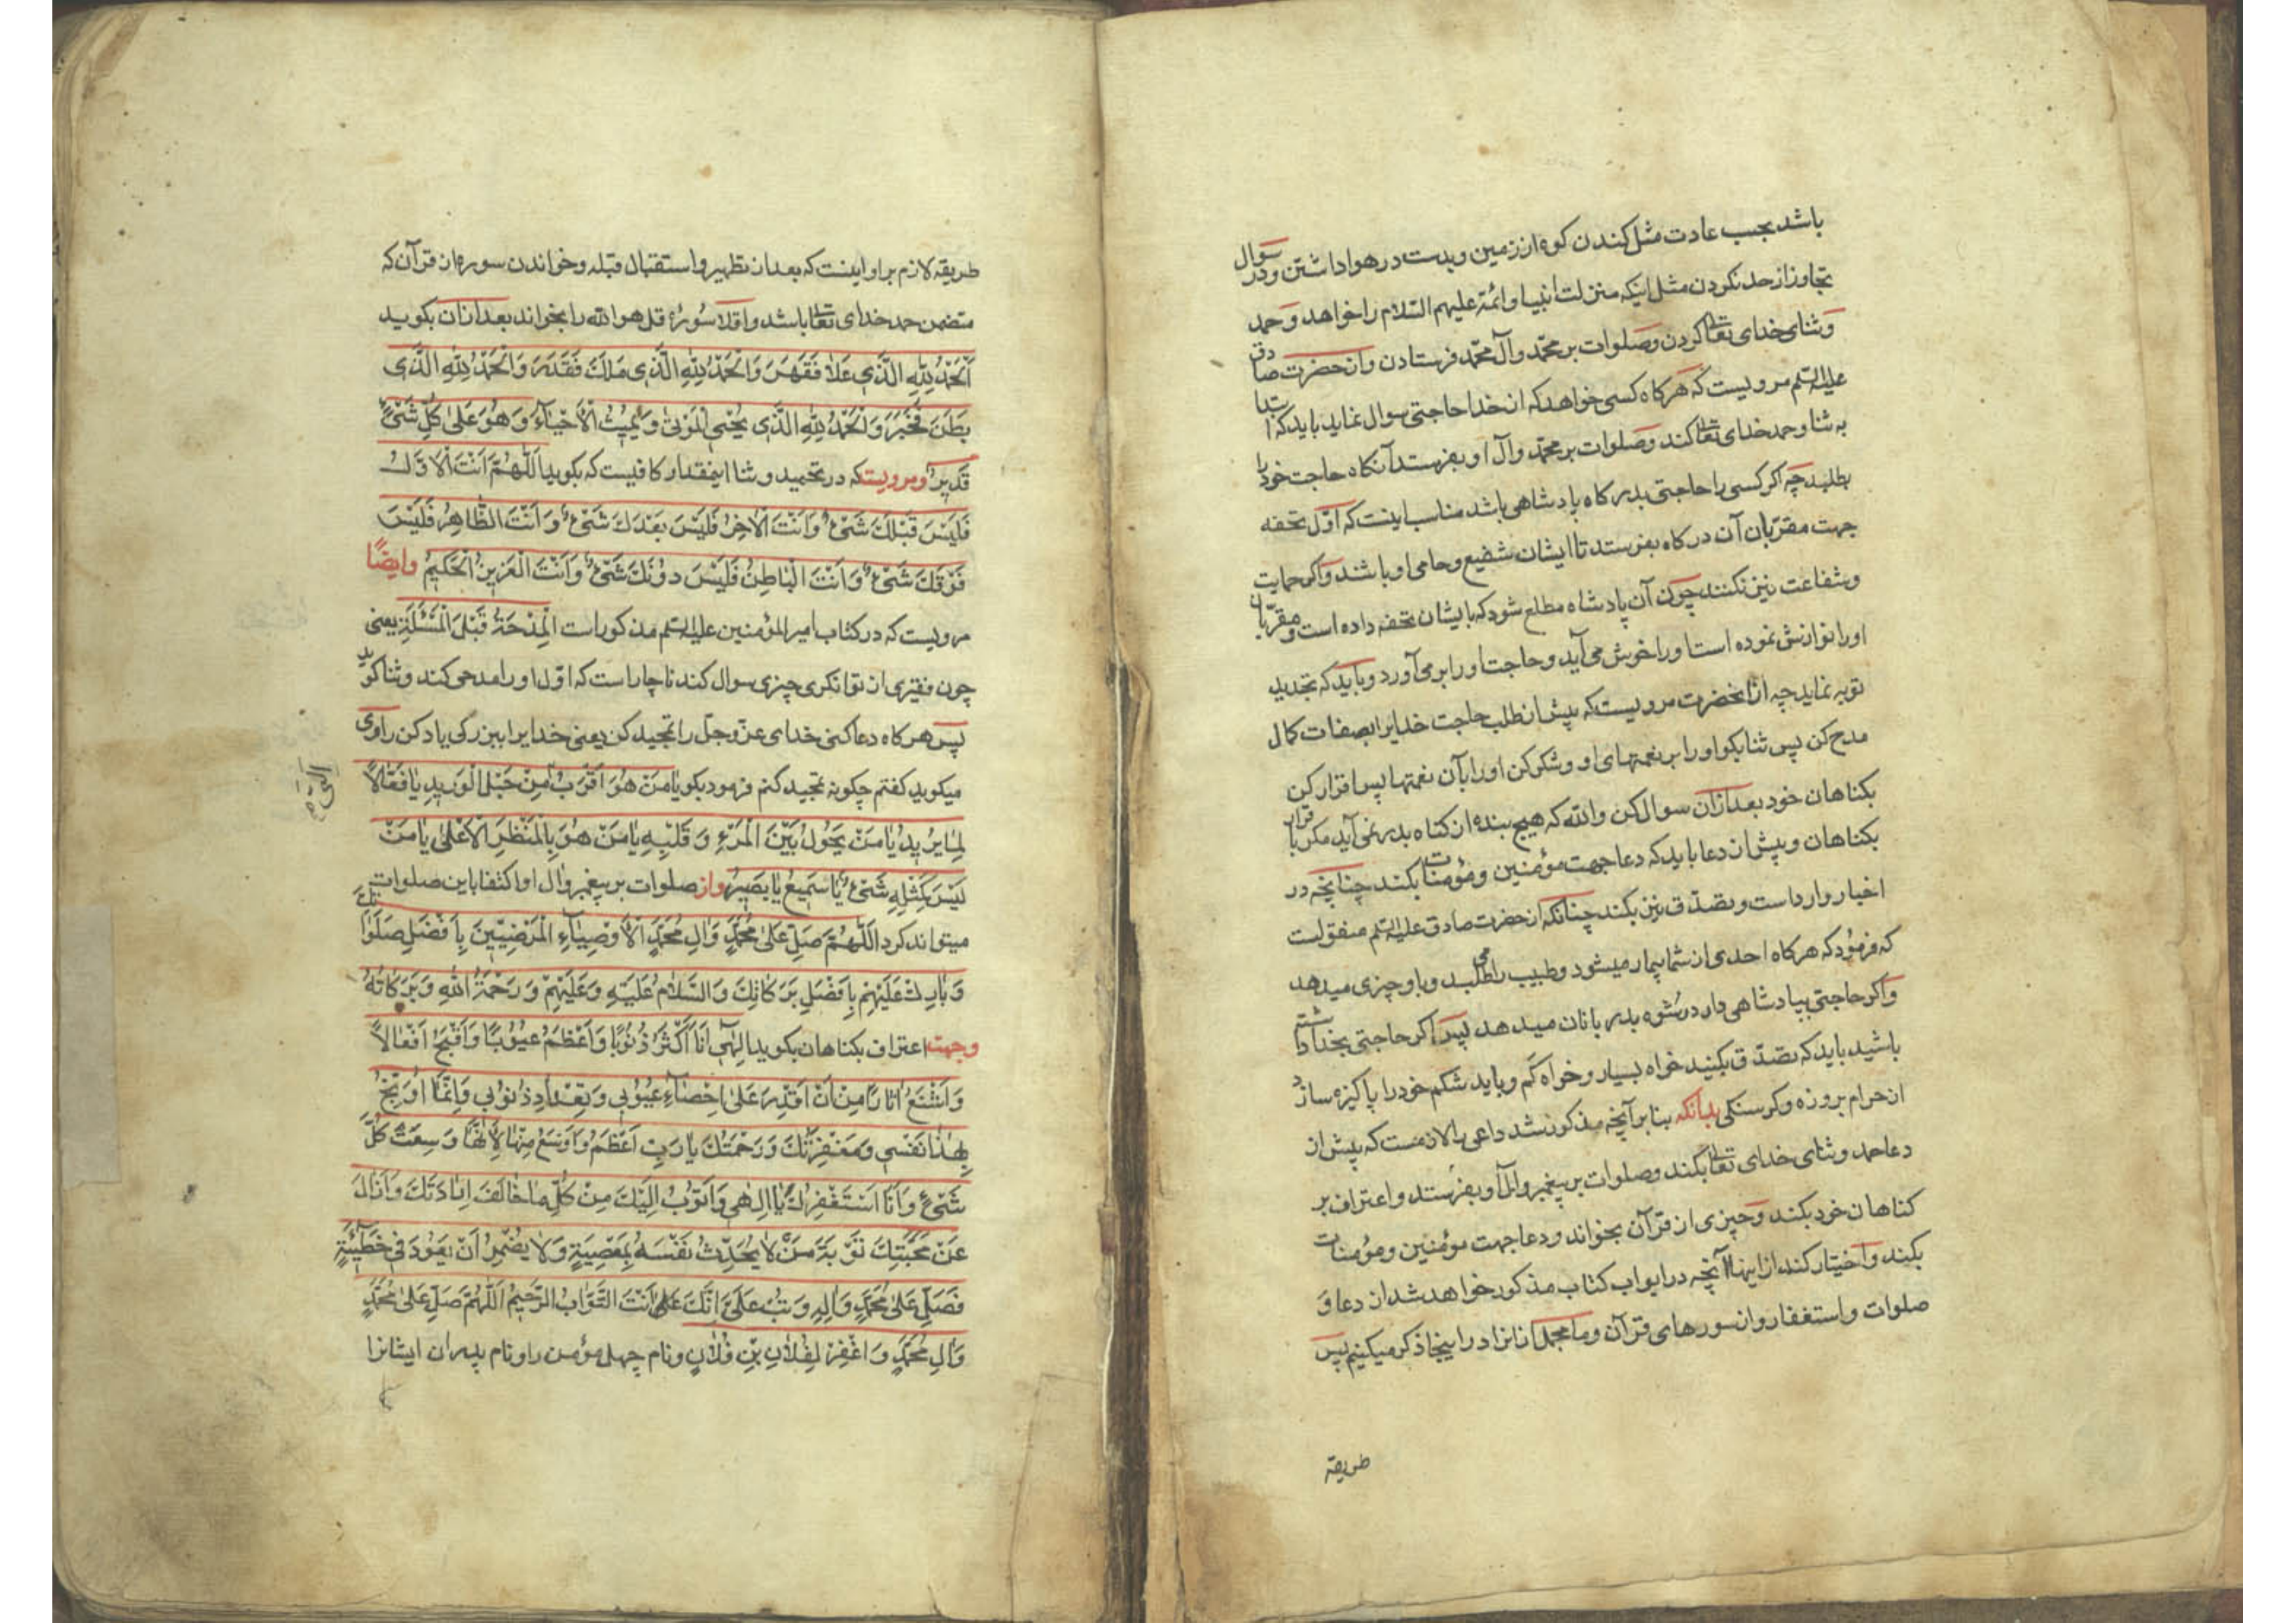 باشد بحسب عادت مثل کندن کوه از زمین و بدست در هوا داشتن و در سوال
تجاوز از حد نکردن مثل اینکه منزلت انبیا و ائمّه علیهم السّلام را خواهد و حمد
و ثنای خدای تعالی کردن و صلوات بر محمّد و آل محمّد فرستادن و از حضرت صادق
علیه السلم مرویست که هر کاه کسی خواهد که از خدا حاجتی سوال نماید باید که ابتدا
به ثنا و حمد خدای تعالی کند و صلوات بر محمّد و آل او بفرستد آنکاه حاجت خود را
بطلبد چه اکر کسی را حاجتی بدرکاه پادشاهی باشد مناسب اینست که اوّل تحفه
جهت مقرّبان آن درکاه بفرستد تا ایشان شفیع و حامی او باشند و اکر حمایت
و شفاعت نیز نکنند چون آن پادشاه مطلع شود که بایشان تحفه داده است و مقرّبان
اورا نوازش نموده است اورا خوش می آید و حاجت اورا بر می آورد و باید که تجدید
توبه نماید چه از انحضرت مرویست که پیش از طلب حاجت خدایرا بصفات کمال
مدح کن پس ثنا بکو اورا بر نعمتهای او و شکر کن اورا بآن نعمتها پس اقرار کن
بکناهان خود بعد ازان سوال کن والله که هیچ بنده از کناه بدر نمی آید مکر باقرار
بکناهان و پیش از دعا باید که دعا جهت مؤمنین و مؤمنات بکند چنانچه در
اخبار وارداست و تصدّق نیز بکند چنانکه از حضرت صادق علیه السلم منقولست
که فرمود که هر کاه احدی از شما بیمار میشود و طبیب را می طلبد و باو چیزی میدهد
و اکر حاجتی بپادشاهی دارد رشوه بدربانان میدهد پس اکر حاجتی بخدا داشته
باشید باید که تصدّق بکنید خواه بسیار و خواه کم و باید شکم خود را پاکیزه سازد
از حرام بروزه و کرسنکی بدانکه بنا بر آنچه مذکور شد داعی را لازمست که پیش از
دعا حمد و ثنای خدای تعالی بکند و صلوات بر پیغمبر و آل او بفرستد و اعتراف بر
کناهان خود بکند و چیزی از قرآن بخواند و دعا جهت مؤمنین و مؤمنات
بکند و اختیار کند از اینها آنچه در ابواب کتاب مذکور خواهد شد از دعا و
صلوات و استغفار و از سورهای قرآن و ما مجملا ازانرا در اینجا ذکر میکنیم پس
طریقه
طریقه لازم بر او اینست که بعد از تطهیر و استقبال قبله و خواندن سوره از قرآن که
متضمن حمد خدای تعالی باشد و اقلا سُورهٔ قل هو الله را بخواند بعد ازان بکوید
اَلْحَمْدُ لِلّٰهِ الَّذی عَلاٰ فَقَهَرَ وَالْحَمْدُ لِلّٰهِ الَّذی مَلَكَ فَقَدَرَ وَالْحَمْدُ لِلّٰهِ الَّذی
بَطَنَ فَخَبَرَ وَالْحَمْدُ لِلّٰهِ الَّذی یُحْیِی الْمَوْتیٰ وَیُمیتُ الْاَحْیٰآءَ وَهُوَ عَلیٰ كُلِّ شَیْءٍ
قَدیرٌ ومرویست که در تحمید و ثنا اینمقدار کافیست که بکوید اَللّٰهُمَّ اَنْتَ الْاَوَّلُ
فَلَیْسَ قَبْلَكَ شَیْءٌ وَاَنْتَ الْاٰخِرُ فَلَیْسَ بَعْدَكَ شَیْءٌ وَاَنْتَ الظّٰاهِرُ فَلَیْسَ
فَوْقَكَ شَیْءٌ وَاَنْتَ الْبٰاطِنُ فَلَیْسَ دُونَكَ شَیْءٌ وَاَنْتَ الْعَزیزُ الْحَكیمُ وایضًا
مرویست که در کتاب امیر المؤمنین علیه السلم مذکوراست اَلْمِدْحَةُ قَبْلَ الْمَسْئَلَةِ یعنی
چون فقیری از توانکری چیزی سوال کند ناچاراست که اوّل اورا مدحی کند و ثنا کوید
پس هر کاه دعا کنی خدای عزّ وجلّ را تمجید کن یعنی خدایرا ببزرکی یاد کن راوی
میکوید کفتم چکونه تمجید کنم فرمود بکو یٰا مَنْ هُوَ اَقْرَبُ مِنْ حَبْلِ الْوَریدِ یٰا فَعّٰالاً
لِمٰا یُریدُ یٰا مَنْ یَحُولُ بَیْنَ الْمَرْءِ وَقَلْبِهِ یٰا مَنْ هُوَ بِالْمَنْظَرِ الْاَعْلیٰ یٰا مَنْ
لَیْسَ كَمِثْلِهِ شَیْءٌ یٰا سَمیعُ یٰا بَصیرُ واز صلوات بر پیغمبر و آل او اکتفا باین صلوات
میتواند کرد اَللّٰهُمَّ صَلِّ عَلیٰ مُحَمَّدٍ وَاٰلِ مُحَمَّدٍ الْاَوْصِیٰآءِ الْمَرْضِیّینَ بِاَفْضَلِ صَلَوٰاتِكَ
وَبٰارِكْ عَلَیْهِمْ بِاَفْضَلِ بَرَكٰاتِكَ وَالسَّلاٰمُ عَلَیْهِ وَعَلَیْهِمْ وَرَحْمَةُ اللّٰهِ وَبَرَكٰاتُهُ
وجهت اعتراف بکناهان بکوید اِلٰهی اَنَا اَكْثَرُ ذُنُوبًا وَاَعْظَمُ عُیُوبًا وَاَقْبَحُ اَفْعٰالاً
وَاَشْنَعُ اٰثٰارًا مِنْ اَنْ اَقْدِرَ عَلیٰ اِحْصٰآءِ عُیُوبی وَتِعْدٰادِ ذُنُوبی وَاِنَّمٰا اُوَبِّخُ
بِهٰذٰا نَفْسی وَمَغْفِرَتُكَ وَرَحْمَتُكَ یٰا رَبِّ اَعْظَمُ وَاَوْسَعُ مِنْهٰا لِاَنَّهٰا وَسِعَتْ كُلَّ
شَیْءٍ وَاَنَا اَسْتَغْفِرُكَ یٰا اِلٰهی وَاَتُوبُ اِلَیْكَ مِنْ كُلِّ مٰا خٰالَفَ اِرٰادَتَكَ وَاَزٰالَ
عَنْ مَحَبَّتِكَ تَوْبَةَ مَنْ لاٰ یُحَدِّثُ نَفْسَهُ بِمَعْصِیَةٍ وَلاٰ یُضْمِرُ اَنْ یَعُودَ فی خَطیٓئَةٍ
فَصَلِّ عَلیٰ مُحَمَّدٍ وَاٰلِهِ وَتُبْ عَلَیَّ اِنَّكَ اَنْتَ التَّوّٰابُ الرَّحیمُ اَللّٰهُمَّ صَلِّ عَلیٰ مُحَمَّدٍ
وَاٰلِ مُحَمَّدٍ وَاغْفِرْ لِفُلاٰنِ بْنِ فُلاٰنٍ ونام چهل مؤمن را و نام پدران ایشانرا